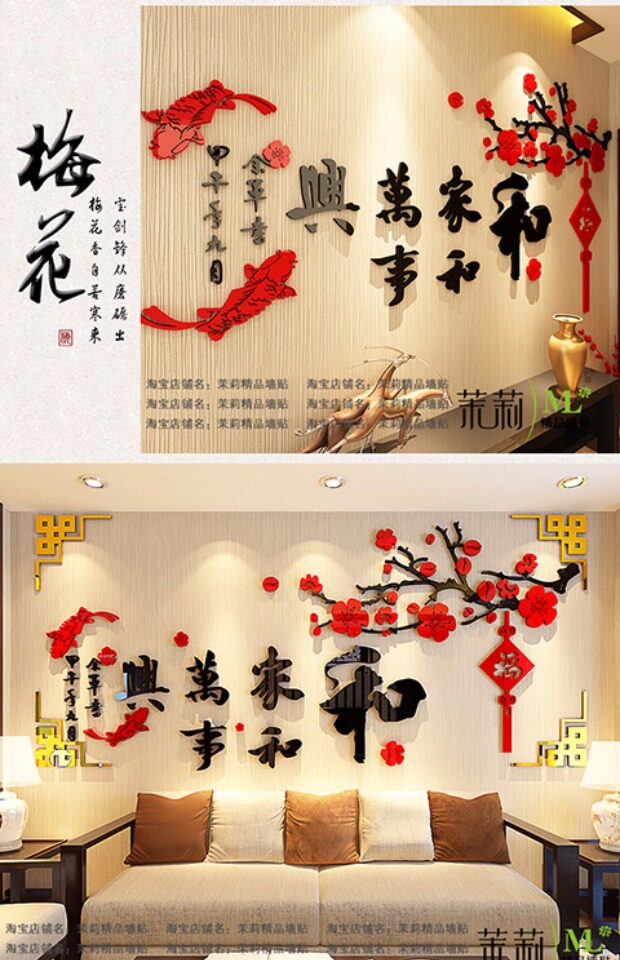 梅花
宝剑锋从磨砺出
梅花香自苦寒来
和
家和
萬事
興
甲午年九月
福
淘宝店铺名：茉莉精品墙贴 淘宝店铺名：茉莉精品墙贴
淘宝店铺名：茉莉精品墙贴 淘宝店铺名：茉莉精品墙贴
淘宝店铺名：茉莉精品墙贴 淘宝店铺名：茉莉精品墙贴
茉莉 ML
精品墙贴
和
家和
萬事
興
甲午年九月
福
淘宝店铺名：茉莉精品墙贴 淘宝店铺名：茉莉精品墙贴 淘宝店铺名：茉莉精品墙贴
淘宝店铺名：茉莉精品墙贴 淘宝店铺名：茉莉精品墙贴 淘宝店铺名：茉莉精品墙贴
茉莉 ML
精品墙贴